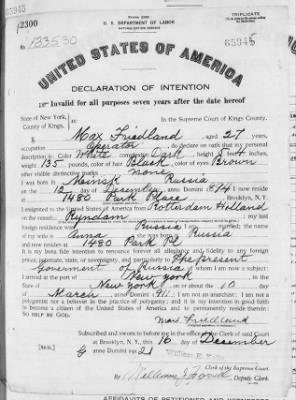 65945
Form 2203
TRIPLICATE
U. S. DEPARTMENT OF LABOR
12300
No. 133530
65945
UNITED STATES OF AMERICA
DECLARATION OF INTENTION
Invalid for all purposes seven years after the date hereof
State of New York,
County of Kings.
In the Supreme Court of Kings County.
I, Max Friedland, aged 27 years,
occupation Operator, do declare on oath that my personal
description is: Color White, complexion Dark, height 5 feet 4 inches,
weight 135 pounds, color of hair Black, color of eyes Brown
other visible distinctive marks none
I was born in Minsk Russia
on the 12 day of December, anno Domini 1894; I now reside
at 1480 Park Place, Brooklyn, N.Y.
I emigrated to the United States of America from Rotterdam Holland
on the vessel Ryndam; my last
foreign residence was Russia; I am married; the name
of my wife is Anna; she was born in Russia
and now resides at 1480 Park Pl
It is my bona fide intention to renounce forever all allegiance and fidelity to any foreign
prince, potentate, state, or sovereignty, and particularly to The present
Government of Russia, of whom I am now a subject;
I arrived at the port of New York, in the
State of New York, on or about the 10 day
of March, anno Domini 1911; I am not an anarchist; I am not a
polygamist nor a believer in the practice of polygamy; and it is my intention in good faith
to become a citizen of the United States of America and to permanently reside therein:
SO HELP ME GOD.
Max Friedland
Subscribed and sworn to before me in the office of the Clerk of said Court
at Brooklyn, N.Y., this 16 day of December
[SEAL] anno Domini 1921
Clerk of the Supreme Court.
By William J. , Deputy Clerk.
AFFIDAVITS OF PETITIONER AND WITNESSES